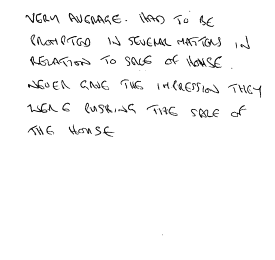 VERY AVERAGE. HAD TO BE
PROMPTED IN SEVERAL MATTERS IN
RELATION TO SALE OF HOUSE.
NEVER GAVE THE IMPRESSION THEY
WERE PUSHING THE SALE OF
THE HOUSE